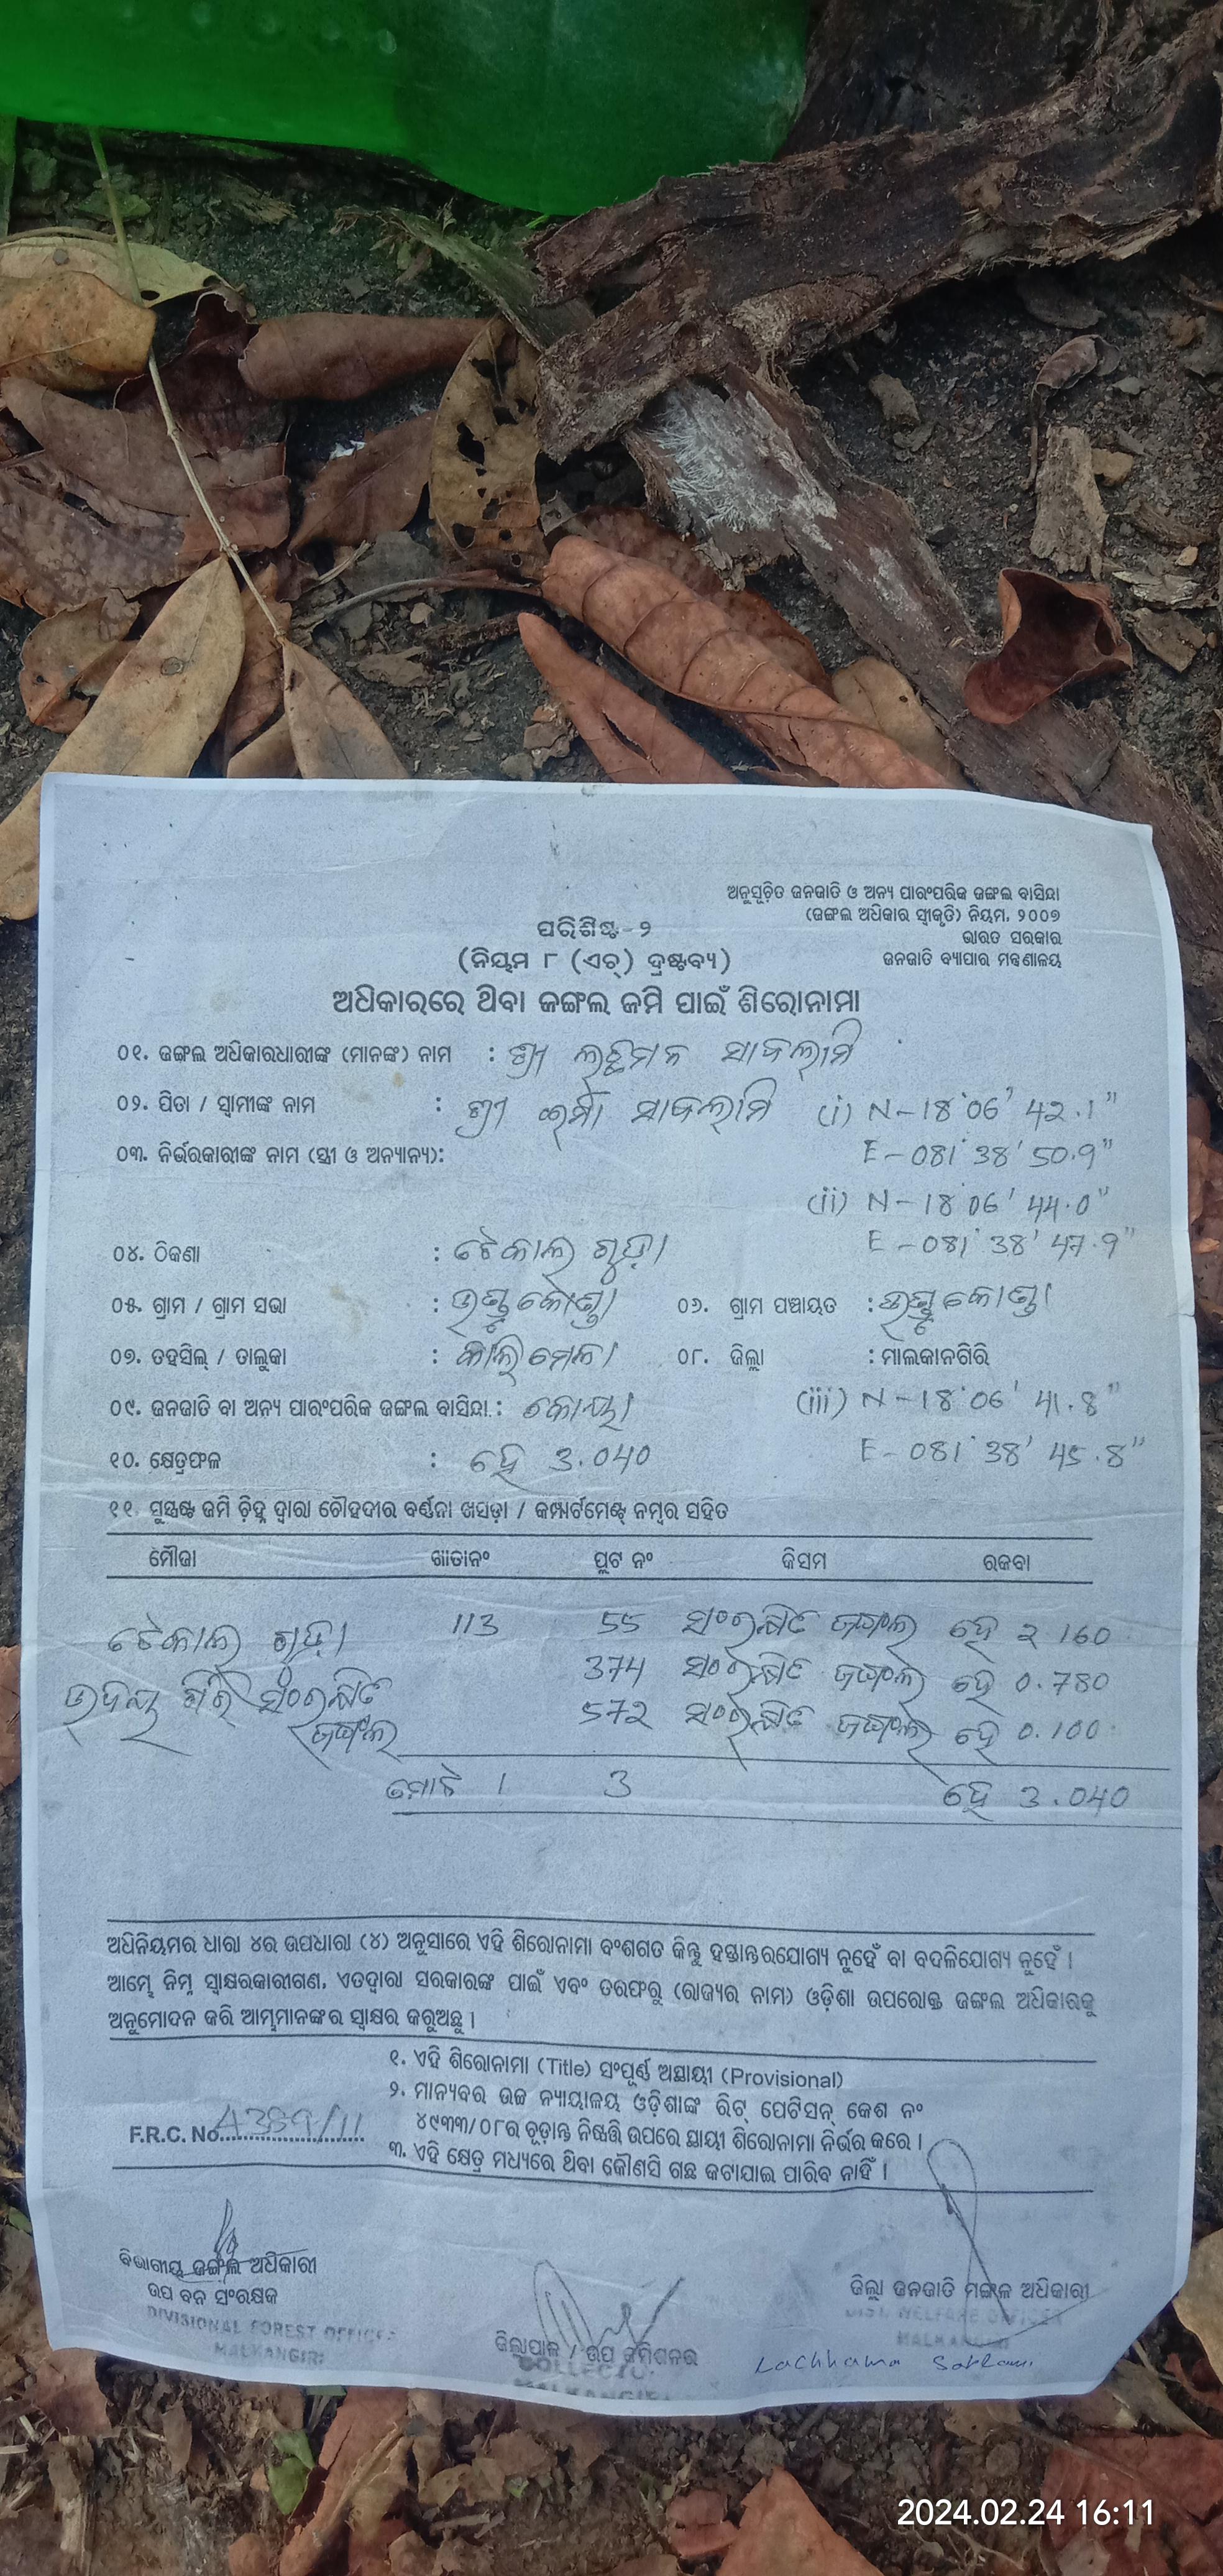 ଅନୁସୂଚିତ ଜନଜାତି ଓ ଅନ୍ୟ ପାରଂପରିକ ଜଙ୍ଗଲ ବାସିନ୍ଦା
(ଜଙ୍ଗଲ ଅଧିକାର ସ୍ୱୀକୃତି) ନିୟମ, ୨୦୦୭
ଭାରତ ସରକାର
ଜନଜାତି ବ୍ୟାପାର ମନ୍ତ୍ରଣାଳୟ
ପରିଶିଷ୍ଟ-୨
(ନିୟମ ୮ (ଏଚ୍) ଦ୍ରଷ୍ଟବ୍ୟ)
ଅଧିକାରରେ ଥିବା ଜଙ୍ଗଲ ଜମି ପାଇଁ ଶିରୋନାମା
୦୧. ଜଙ୍ଗଲ ଅଧିକାରଧାରୀଙ୍କ (ମାନଙ୍କ) ନାମ : ଶ୍ରୀ ଲଛମନ ସାବଲାମି
୦୨. ପିତା / ସ୍ୱାମୀଙ୍କ ନାମ : ଶ୍ରୀ ଇର୍ମା ସାବଲାମି (i) N-18°06' 42.1"
୦୩. ନିର୍ଭରକାରୀଙ୍କ ନାମ (ସ୍ତ୍ରୀ ଓ ଅନ୍ୟାନ୍ୟ): E-081°38'50.9"
(ii) N-18°06' 44.0"
୦୪. ଠିକଣା : ଟେକାଲ ଗୁଡ଼ା E-081°38' 47.9"
୦୫. ଗ୍ରାମ / ଗ୍ରାମ ସଭା : ୦୬. ଗ୍ରାମ ପଞ୍ଚାୟତ :
୦୭. ତହସିଲ୍ / ତାଲୁକା : କାଲିମେଳା ୦୮. ଜିଲ୍ଲା : ମାଲକାନଗିରି
୦୯. ଜନଜାତି ବା ଅନ୍ୟ ପାରଂପରିକ ଜଙ୍ଗଲ ବାସିନ୍ଦା : କୋୟା (iii) N-18°06' 41.8"
୧୦. କ୍ଷେତ୍ରଫଳ : ହେ 3.040 E-081°38' 45.8"
୧୧. ସୁସ୍ପଷ୍ଟ ଜମି ଚିହ୍ନ ଦ୍ୱାରା ଚୌହଦୀର ବର୍ଣ୍ଣନା ଖସଡ଼ା / କମ୍ପାର୍ଟମେଣ୍ଟ୍ ନମ୍ବର ସହିତ
ମୌଜା ଖାତାନଂ ପ୍ଲଟ ନଂ କିସମ ରକବା
ଟେକାଲ ଗୁଡ଼ା 113 55 ସଂରକ୍ଷିତ ଜଙ୍ଗଲ ହେ 2.160
374 ସଂରକ୍ଷିତ ଜଙ୍ଗଲ ହେ 0.780
ଉଦୟ ଗିରି ସଂରକ୍ଷିତ 572 ସଂରକ୍ଷିତ ଜଙ୍ଗଲ ହେ 0.100
ଜଙ୍ଗଲ
ମୋଟ 1 3 ହେ 3.040
ଅଧିନିୟମର ଧାରା ୪ର ଉପଧାରା (୪) ଅନୁସାରେ ଏହି ଶିରୋନାମା ବଂଶଗତ କିନ୍ତୁ ହସ୍ତାନ୍ତରଯୋଗ୍ୟ ନୁହେଁ ବା ବଦଳିଯୋଗ୍ୟ ନୁହେଁ ।
ଆମ୍ଭେ ନିମ୍ନ ସ୍ୱାକ୍ଷରକାରୀଗଣ, ଏତଦ୍ୱାରା ସରକାରଙ୍କ ପାଇଁ ଏବଂ ତରଫରୁ (ରାଜ୍ୟର ନାମ) ଓଡ଼ିଶା ଉପରୋକ୍ତ ଜଙ୍ଗଲ ଅଧିକାରକୁ
ଅନୁମୋଦନ କରି ଆମ୍ଭମାନଙ୍କର ସ୍ୱାକ୍ଷର କରୁଅଛୁ ।
୧. ଏହି ଶିରୋନାମା (Title) ସଂପୂର୍ଣ୍ଣ ଅସ୍ଥାୟୀ (Provisional)
୨. ମାନ୍ୟବର ଉଚ୍ଚ ନ୍ୟାୟାଳୟ ଓଡ଼ିଶାଙ୍କ ରିଟ୍ ପେଟିସନ୍ କେଶ ନଂ
୪୯୩୩/୦୮ର ଚୂଡ଼ାନ୍ତ ନିଷ୍ପତ୍ତି ଉପରେ ସ୍ଥାୟୀ ଶିରୋନାମା ନିର୍ଭର କରେ ।
F.R.C. No. 4389/11
୩. ଏହି କ୍ଷେତ୍ର ମଧ୍ୟରେ ଥିବା କୌଣସି ଗଛ କଟାଯାଇ ପାରିବ ନାହିଁ ।
ବିଭାଗୀୟ ଜଙ୍ଗଲ ଅଧିକାରୀ
ଉପ ବନ ସଂରକ୍ଷକ
DIVISIONAL FOREST OFFICER
MALKANGIRI
ଜିଲ୍ଲାପାଳ / ଉପ କମିଶନର
COLLECTOR
MALKANGIRI
ଜିଲ୍ଲା ଜନଜାତି ମଙ୍ଗଳ ଅଧିକାରୀ
DIST. WELFARE OFFICER
MALKANGIRI
Lachhama
2024.02.24 16:11